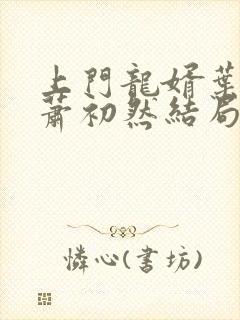 上門龍婿葉
蕭初然結局
憐心(書坊)